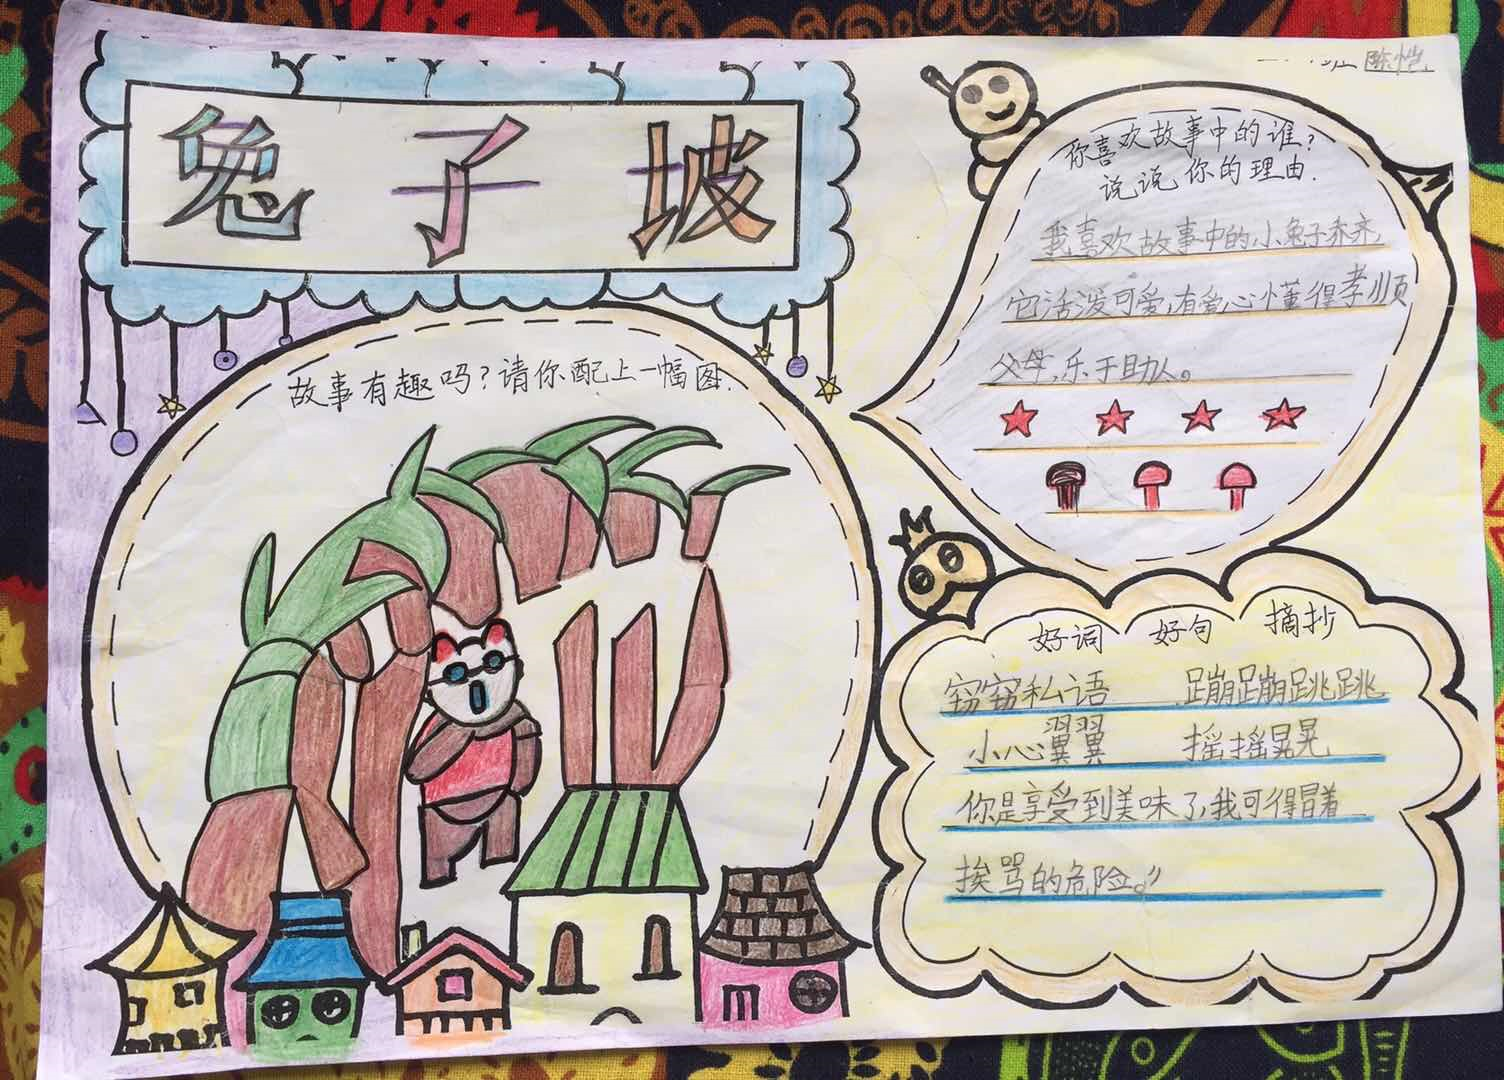 兔子坡
班 陈恺
你喜欢故事中的谁?
说说你的理由.
我喜欢故事中的小兔子乔乔,
它活泼可爱,有爱心懂得孝顺
父母,乐于助人。
故事有趣吗?请你配上一幅图.
好词 好句 摘抄
窃窃私语 蹦蹦跳跳
小心翼翼 摇摇晃晃
你是享受到美味了,我可得冒着
挨骂的危险。”